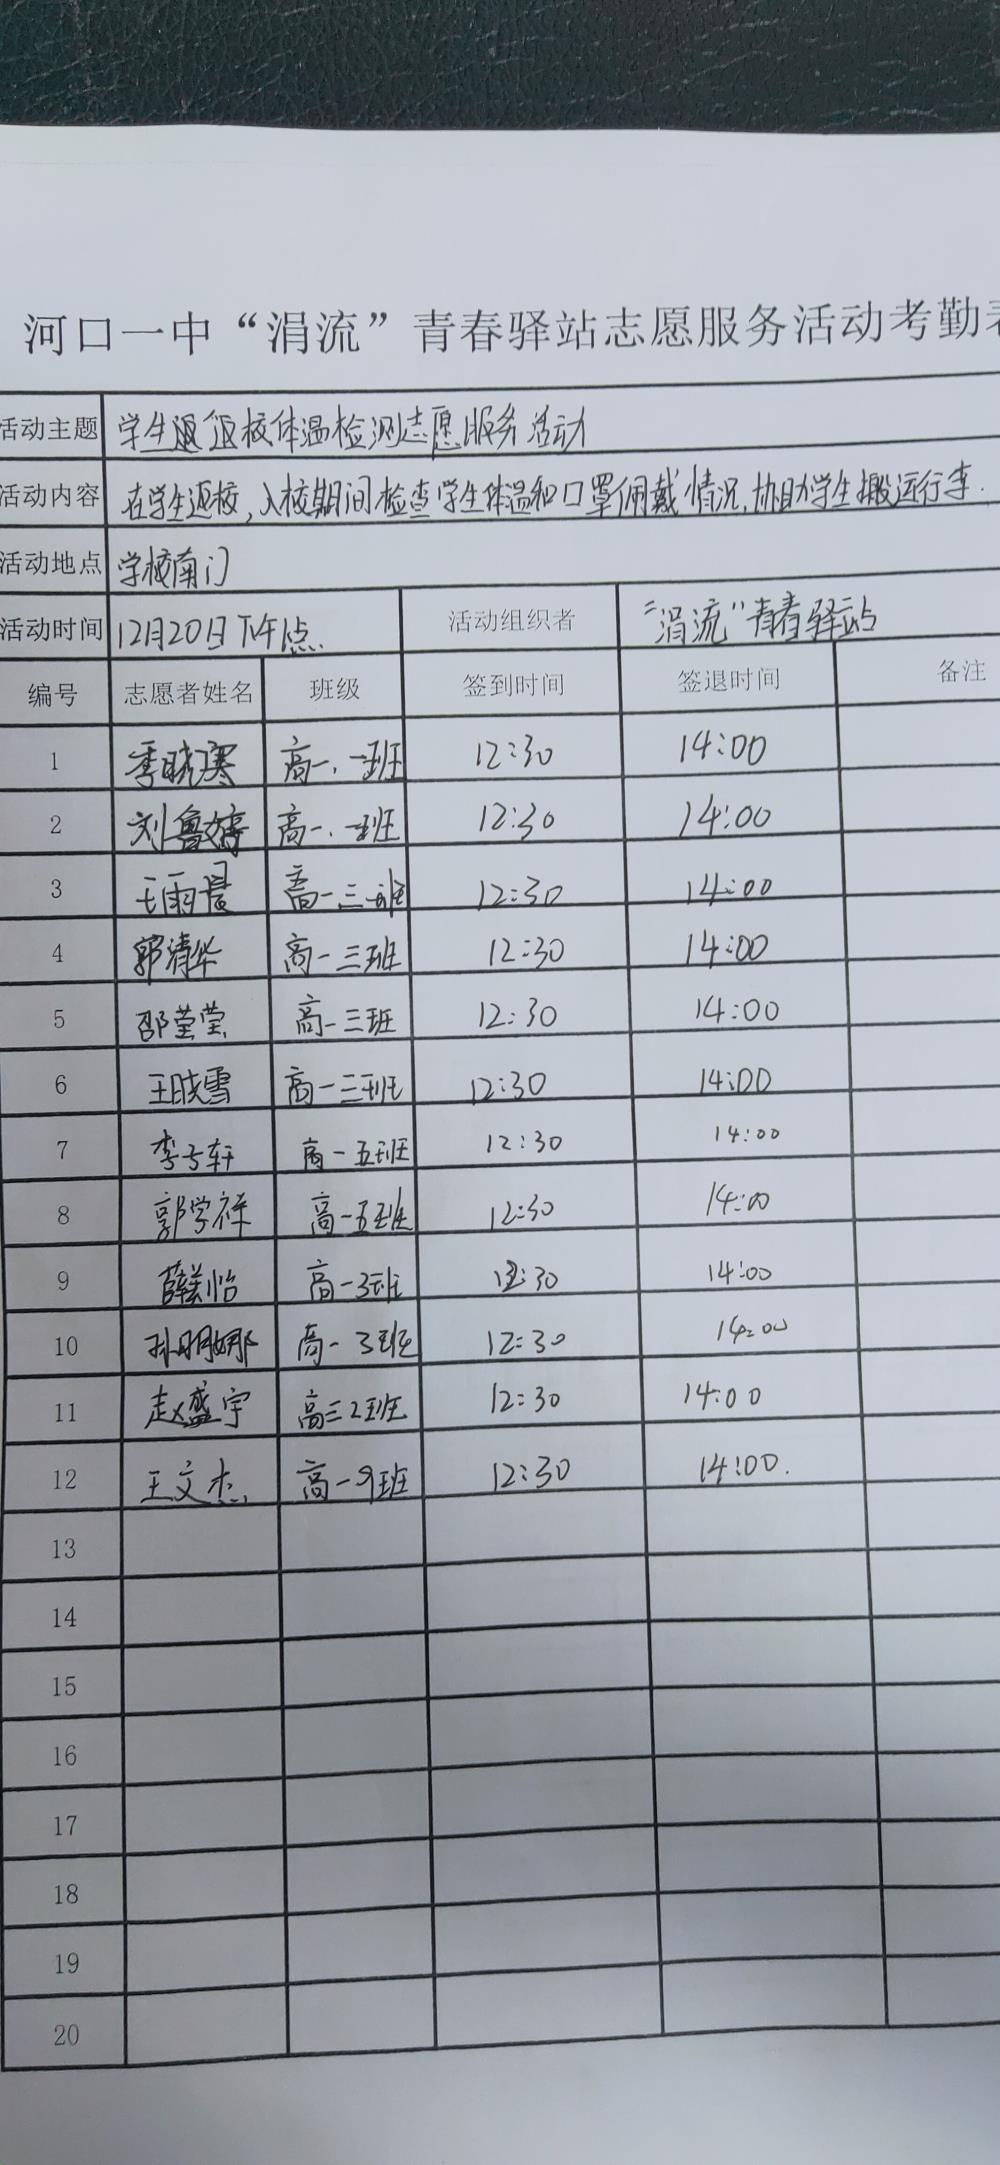 河口一中“涓流”青春驿站志愿服务活动考勤表
活动主题 学生返校体温检测志愿服务活动
活动内容 在学生返校,入校期间检查学生体温和口罩佩戴情况,协助学生搬运行李.
活动地点 学校南门
活动时间 12月20日下午1点 活动组织者 “涓流”青春驿站
编号 志愿者姓名 班级 签到时间 签退时间 备注
1 季晓寒 高一.一班 12:30 14:00
2 刘鲁婷 高一.一班 12:30 14:00
3 王雨晨 高一三班 12:30 14:00
4 郭清华 高一三班 12:30 14:00
5 邵莹莹 高一三班 12:30 14:00
6 王晓雪 高一三班 12:30 14:00
7 李子轩 高一五班 12:30 14:00
8 郭学祥 高一五班 12:30 14:00
9 薛美怡 高一3班 12:30 14:00
10 孙明娜 高一3班 12:30 14:00
11 赵盛宇 高三2班 12:30 14:00
12 王文杰 高一9班 12:30 14:00.
13
14
15
16
17
18
19
20